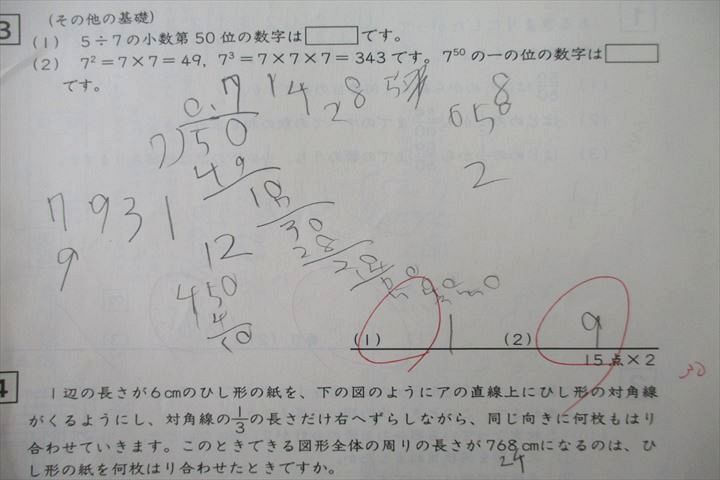 3 (その他の基礎)
(1) 5÷7の小数第50位の数字は□です。
(2) 7²=7×7=49, 7³=7×7×7=343です。7⁵⁰の一の位の数字は□
です。
0.7 1 4 2 8 5
7)50
49
10
30
28
20
7 9 3 1
9
12
4)50
4
10
658
2
(1) 1 (2) 9
15点×2
30
4 1辺の長さが6cmのひし形の紙を、下の図のようにアの直線上にひし形の対角線
がくるようにし、対角線の1/3の長さだけ右へずらしながら、同じ向きに何枚もはり
合わせていきます。このときできる図形全体の周りの長さが768cmになるのは、ひ
し形の紙を何枚はり合わせたときですか。
24